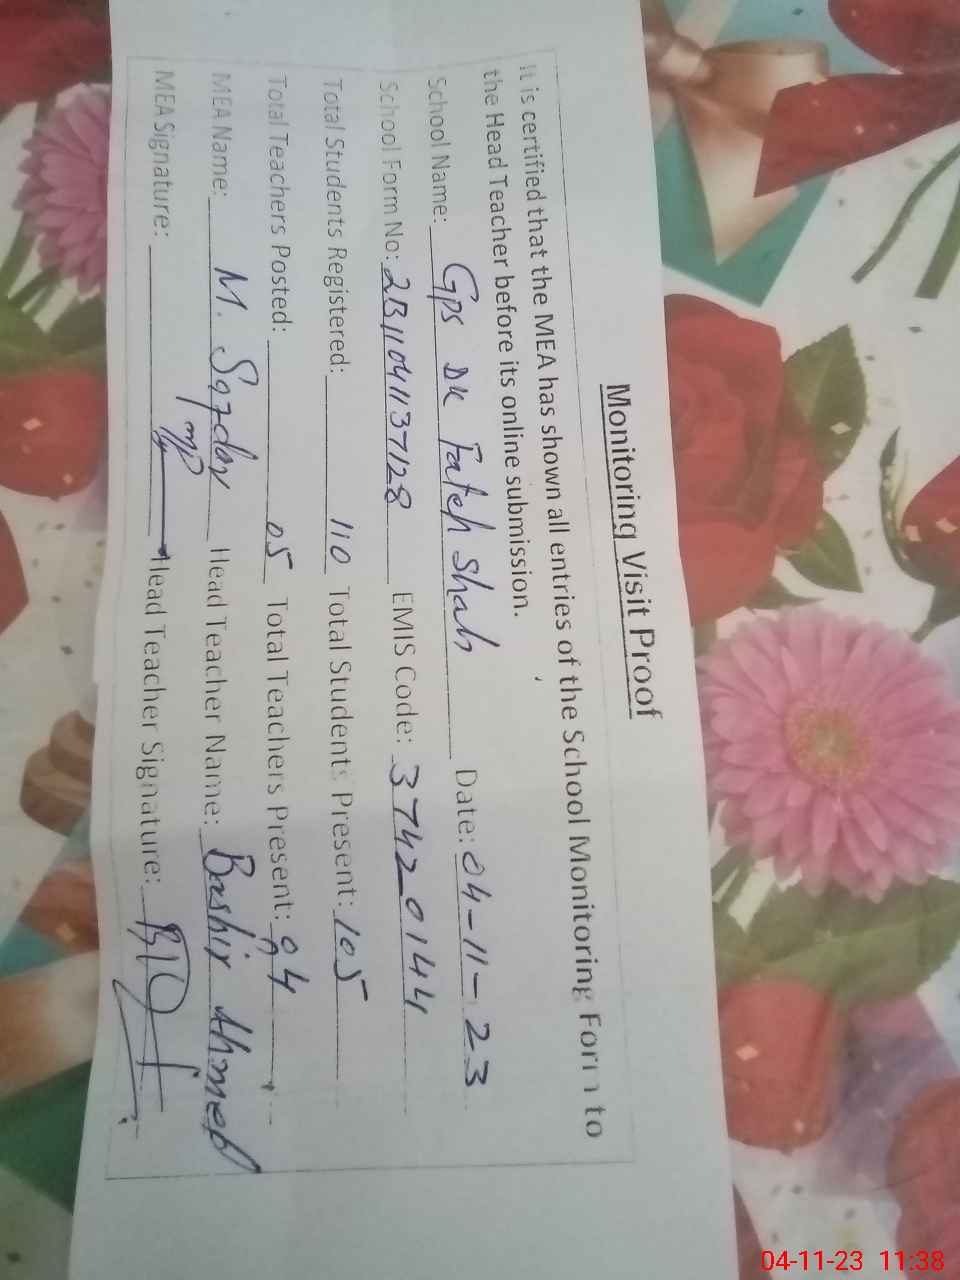 Monitoring Visit Proof
It is certified that the MEA has shown all entries of the School Monitoring Form to
the Head Teacher before its online submission.
School Name: Gps DK Fateh Shah Date: 04-11-23
School Form No: 2311041137128 EMIS Code: 37420144
Total Students Registered: 110 Total Students Present: 105
Total Teachers Posted: 05 Total Teachers Present: 04
MEA Name: M. Head Teacher Name: Bashir Ahmed
MEA Signature: Head Teacher Signature:
04-11-23 11:38